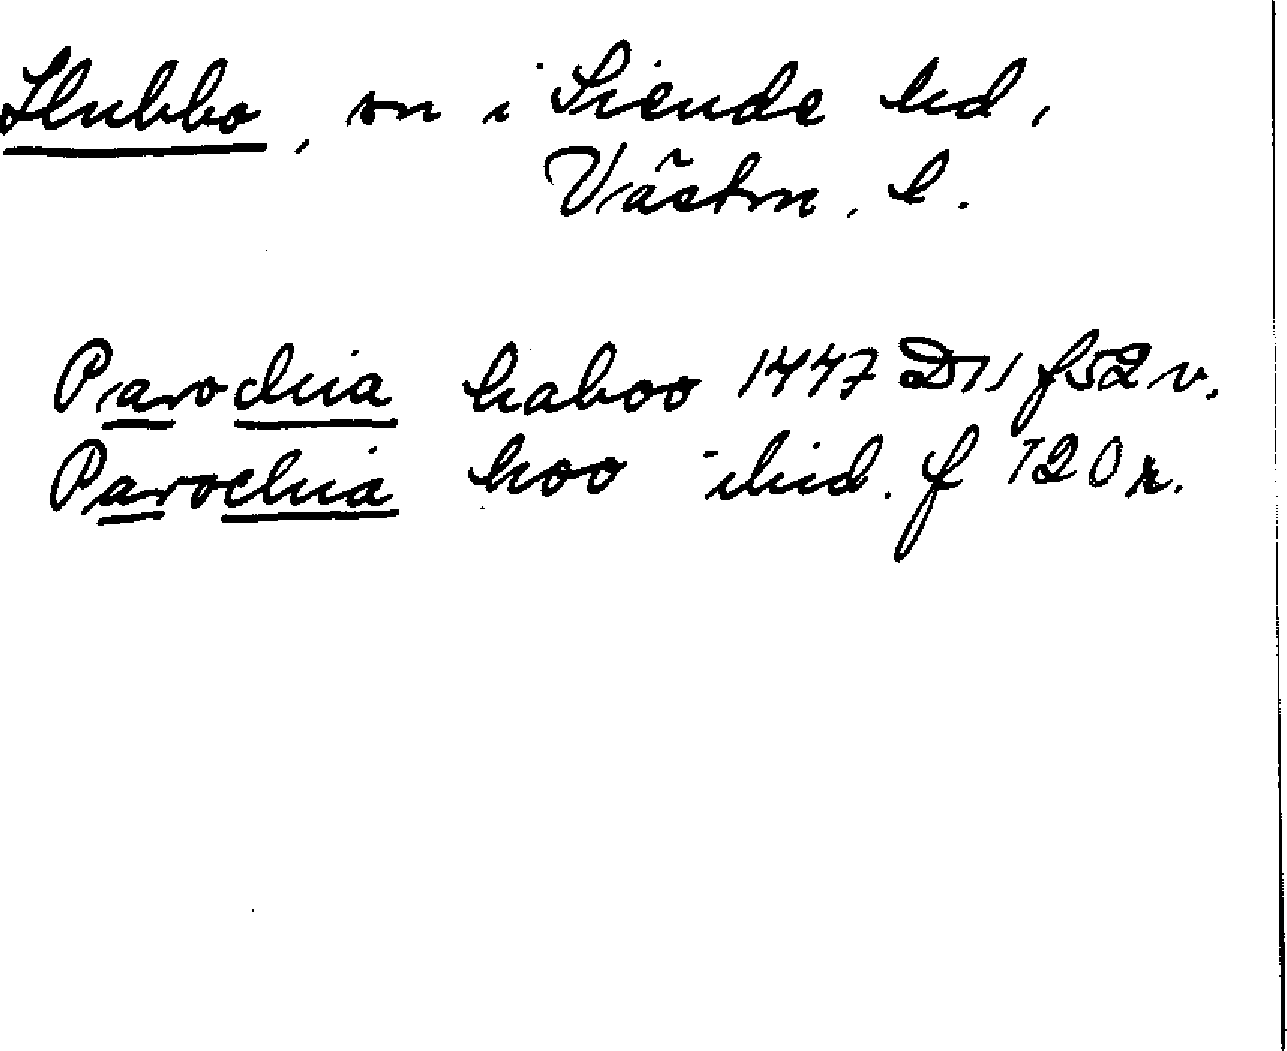 Hubbo, sn i Siende hd,
Västm. l.
Parochia haboo 1447 D11 f52 v.
Parochia hoo ibid. f 120 r.